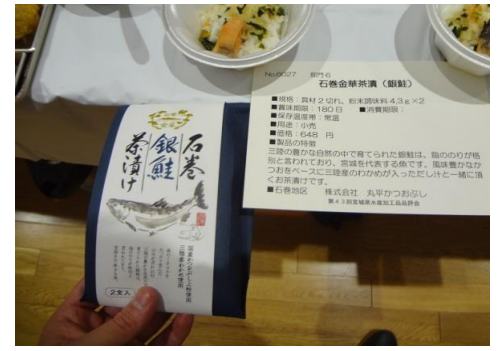 No.0027 部門6
石巻金華茶漬（銀鮭）
■規格：具材２切れ、粉末調味料4.3ｇ×2
■賞味期限：180日 ■消費期限：
■保存温度帯：常温
■用途：小売
■価格：648 円
■製品の特徴
三陸の豊かな自然の中で育てられた銀鮭は、脂ののりが格
別と言われており、宮城を代表する魚です。風味豊かなか
つおをベースに三陸産のわかめが入っただし汁と一緒に頂
くお茶漬けです。
■石巻地区 株式会社 丸平かつおぶし
第43回宮城県水産加工品品評会
石巻
銀鮭
茶漬け
国産かつおぶし上粉使用
三陸産わかめ使用
2食入